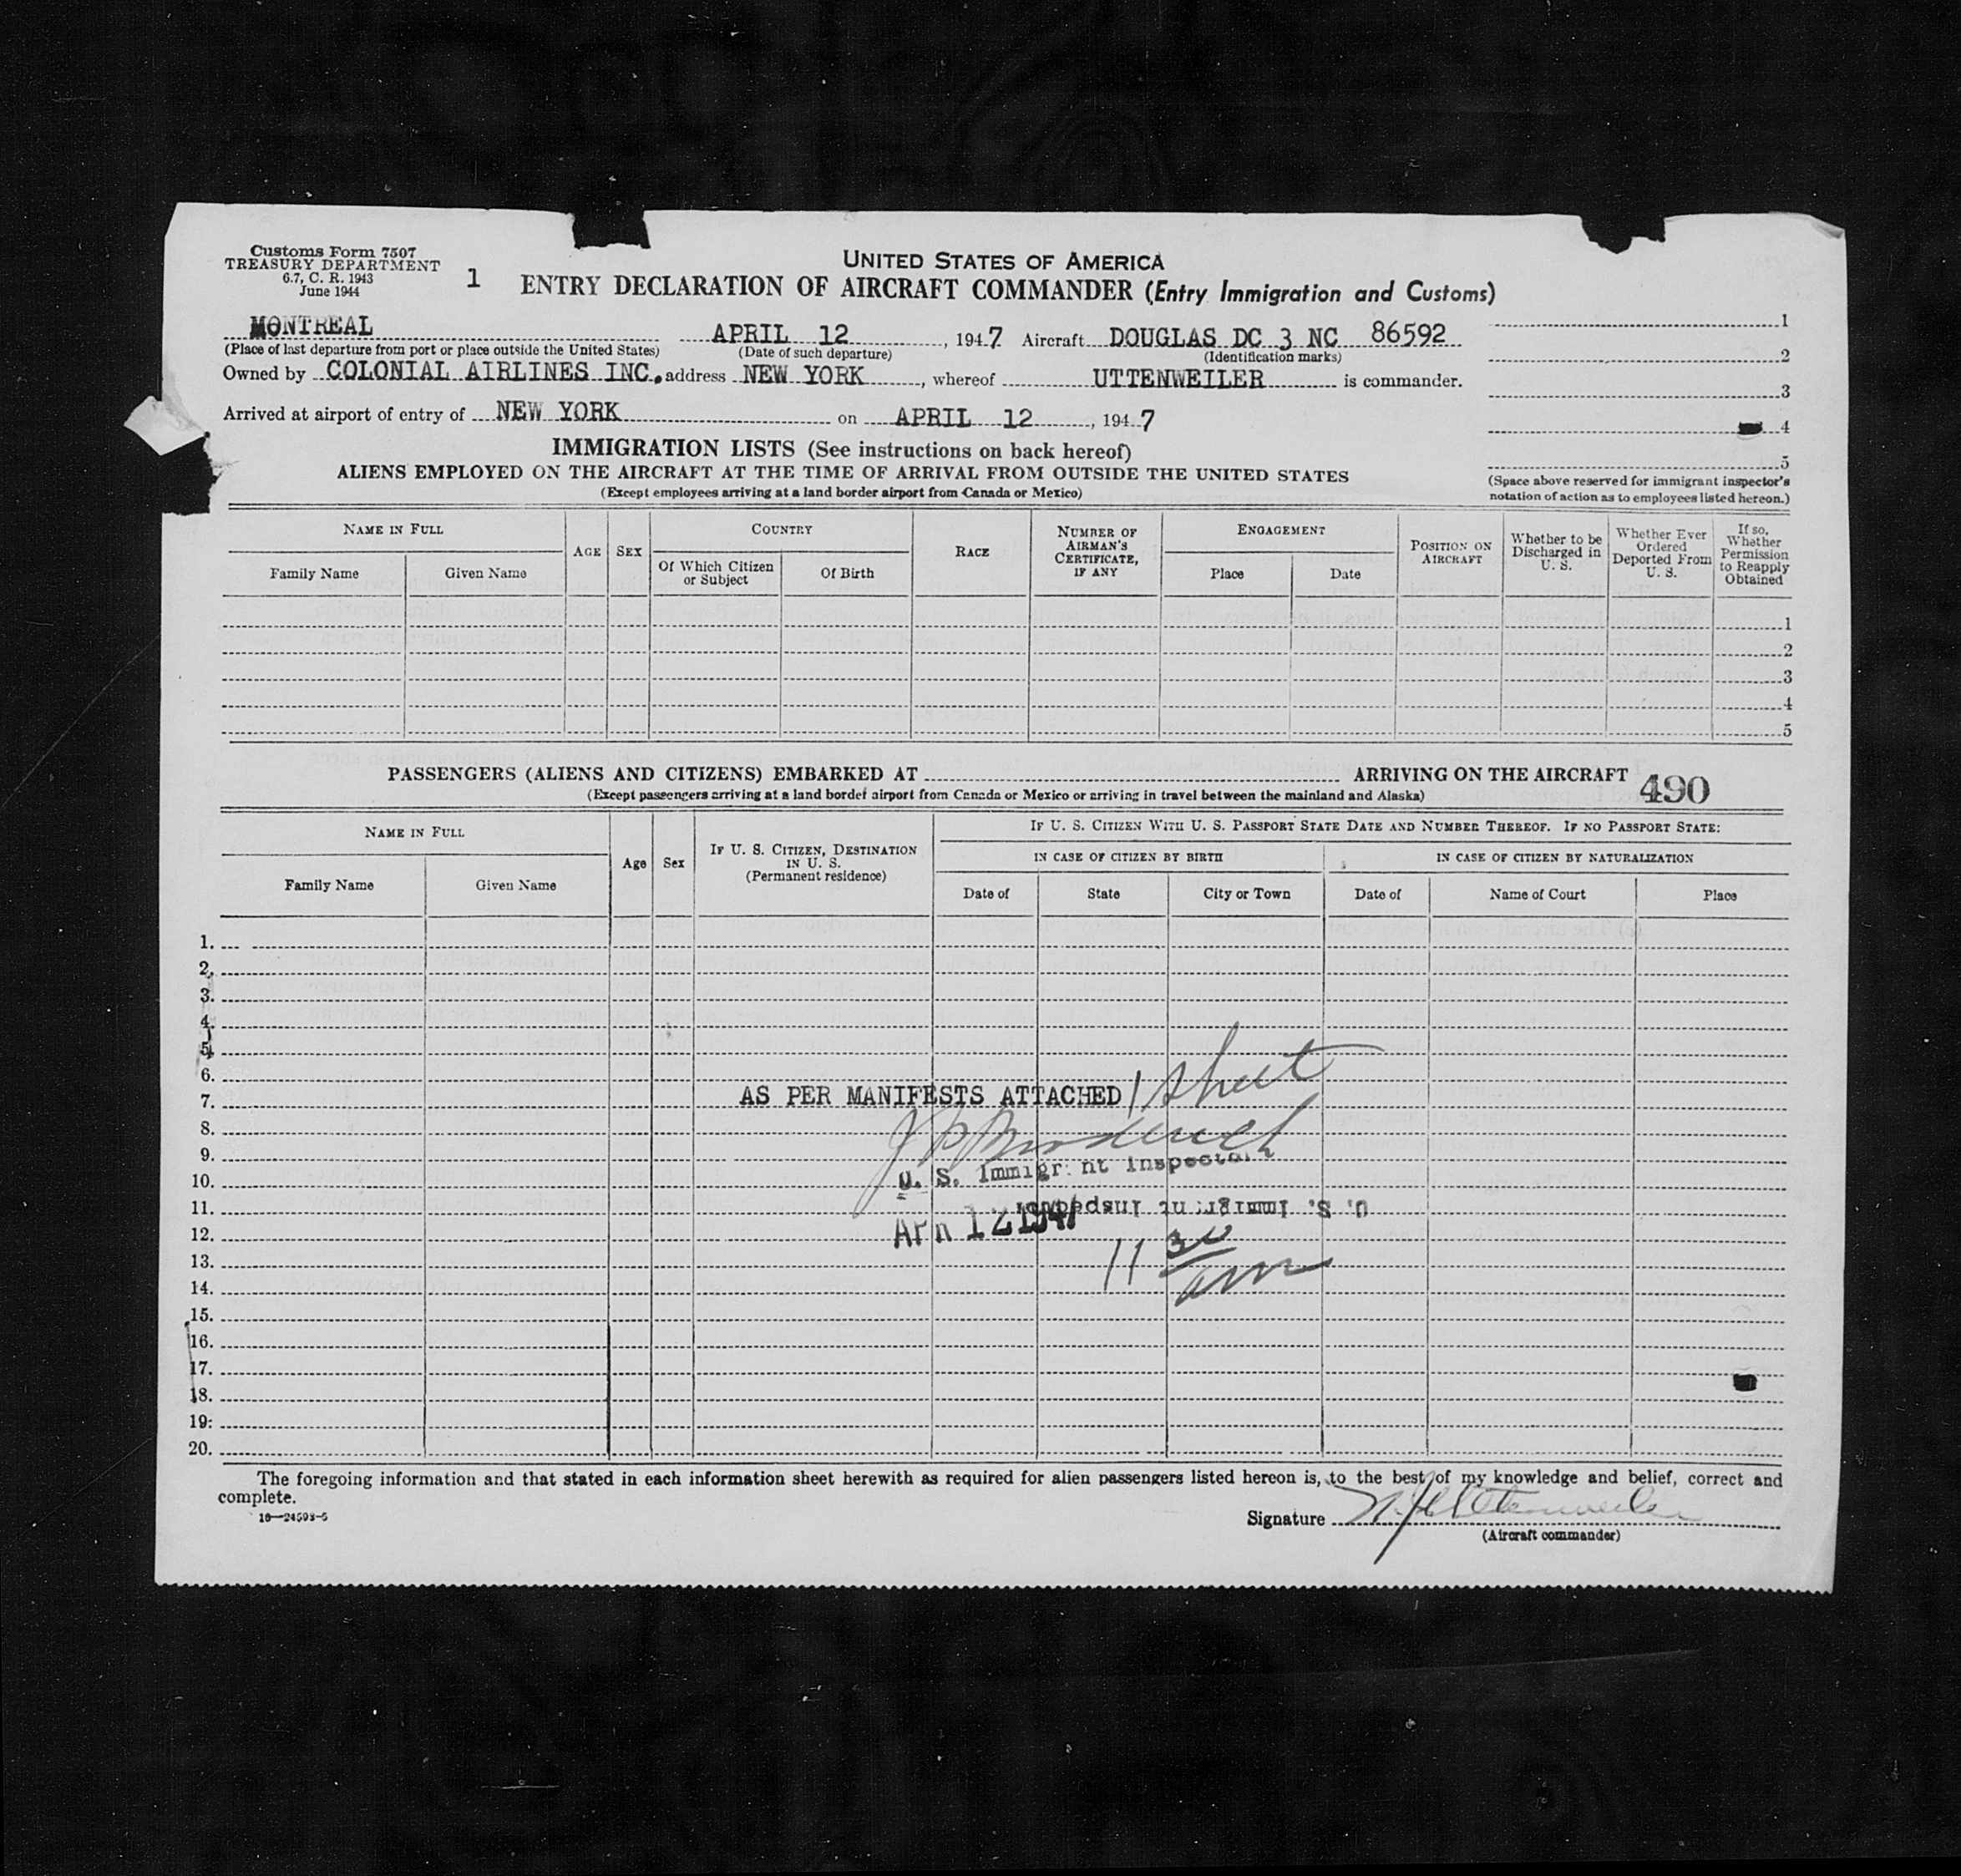 Customs Form 7507
TREASURY DEPARTMENT
6.7, C. R. 1943
June 1944
1
UNITED STATES OF AMERICA
ENTRY DECLARATION OF AIRCRAFT COMMANDER (Entry Immigration and Customs)
MONTREAL APRIL 12, 1947 Aircraft DOUGLAS DC 3 NC 86592
(Place of last departure from port or place outside the United States) (Date of such departure) (Identification marks)
Owned by COLONIAL AIRLINES INC. address NEW YORK, whereof UTTENWEILER is commander.
Arrived at airport of entry of NEW YORK on APRIL 12, 1947
1
2
3
4
5
(Space above reserved for immigrant inspector's
notation of action as to employees listed hereon.)
IMMIGRATION LISTS (See instructions on back hereof)
ALIENS EMPLOYED ON THE AIRCRAFT AT THE TIME OF ARRIVAL FROM OUTSIDE THE UNITED STATES
(Except employees arriving at a land border airport from Canada or Mexico)
NAME IN FULL
Family Name
Given Name
AGE
SEX
COUNTRY
Of Which Citizen
or Subject
Of Birth
RACE
NUMBER OF
AIRMAN'S
CERTIFICATE,
IF ANY
ENGAGEMENT
Place
Date
POSITION ON
AIRCRAFT
Whether to be
Discharged in
U. S.
Whether Ever
Ordered
Deported From
U. S.
If so,
Whether
Permission
to Reapply
Obtained
1
2
3
4
5
PASSENGERS (ALIENS AND CITIZENS) EMBARKED AT ARRIVING ON THE AIRCRAFT 490
(Except passengers arriving at a land border airport from Canada or Mexico or arriving in travel between the mainland and Alaska)
NAME IN FULL
Family Name
Given Name
Age
Sex
IF U. S. CITIZEN, DESTINATION
IN U. S.
(Permanent residence)
IF U. S. CITIZEN WITH U. S. PASSPORT STATE DATE AND NUMBER THEREOF. IF NO PASSPORT STATE:
IN CASE OF CITIZEN BY BIRTH
IN CASE OF CITIZEN BY NATURALIZATION
Date of
State
City or Town
Date of
Name of Court
Place
1.
2.
3.
4.
5.
6.
7. AS PER MANIFESTS ATTACHED 1 sheet
8.
9.
10. U. S. Immigrant Inspector
11. U. S. Immigrant Inspector
12. APR 12 1947
13. 11 30
14. am
15.
16.
17.
18.
19.
20.
The foregoing information and that stated in each information sheet herewith as required for alien passengers listed hereon is, to the best of my knowledge and belief, correct and
complete.
16—24593-5
Signature
(Aircraft commander)